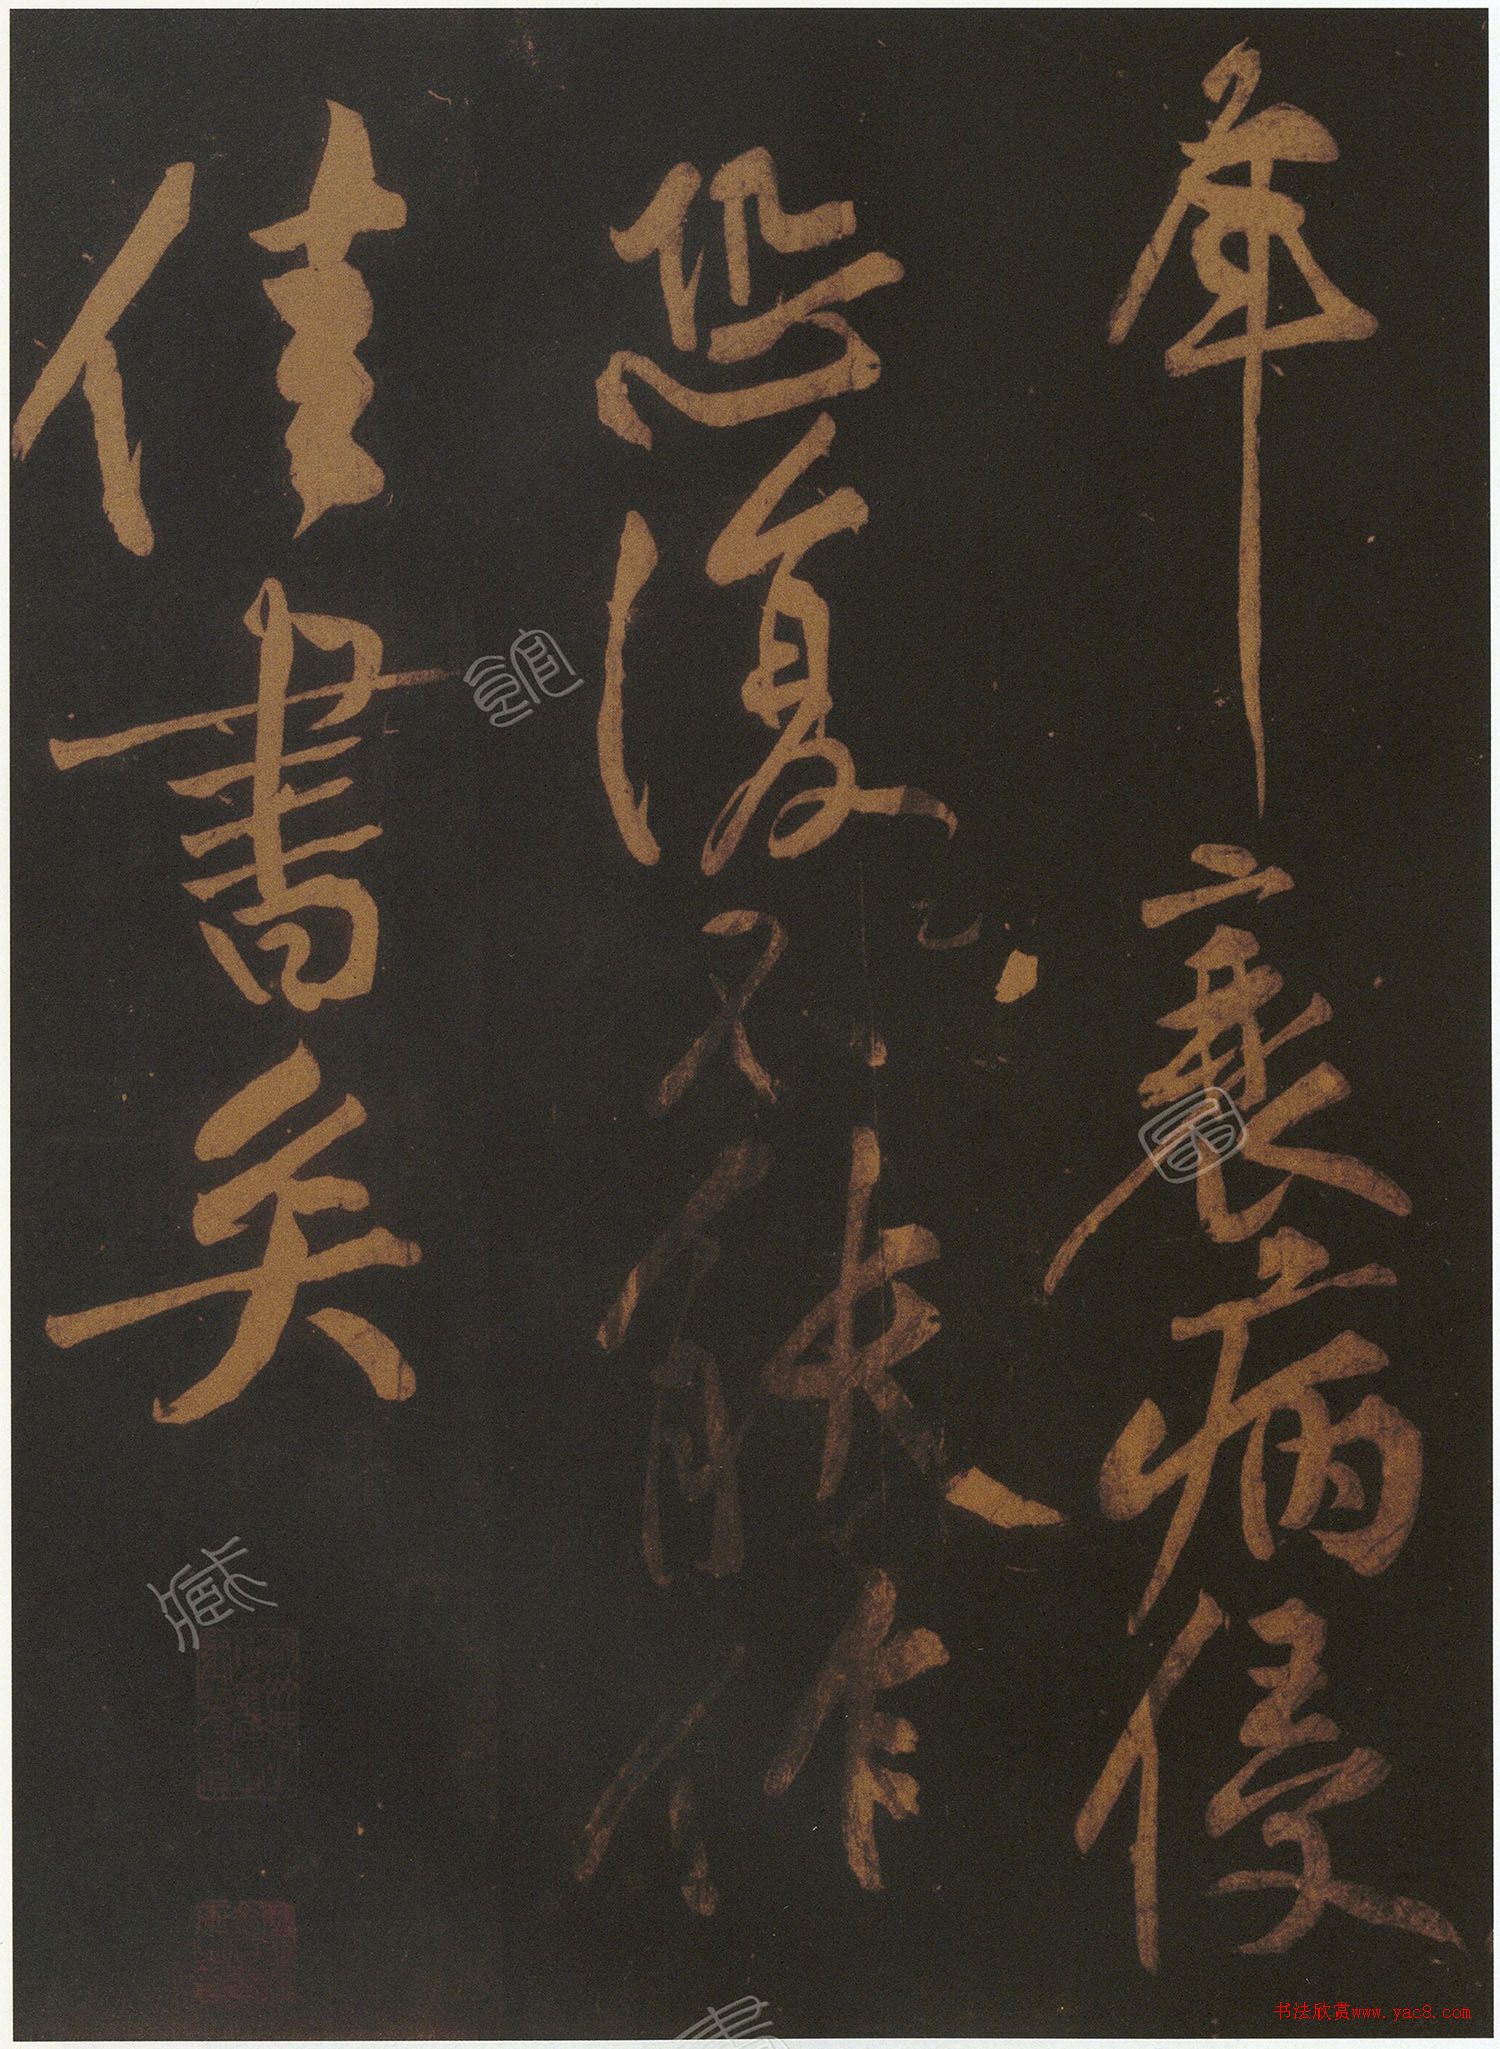 年衰病侵
恐復不能作
佳書矣
書法欣赏www.yac8.com